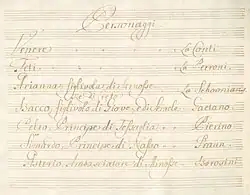 Personaggi
Venere La Conti
Teti La Perroni
Arianna figlivola di Minosse La Schoonians
Bacco, figlivolo di Giove Gaetano
Principe di Tessaglia Pierino
Principe di Nasso Praun
Ambasciatore di Minosse Borosini